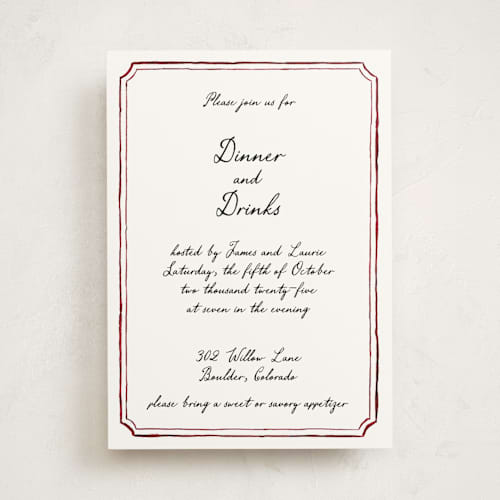 Please join us for
Dinner
and
Drinks
hosted by James and Laurie
Saturday, the fifth of October
two thousand twenty-five
at seven in the evening
302 Willow Lane
Boulder, Colorado
please bring a sweet or savory appetizer